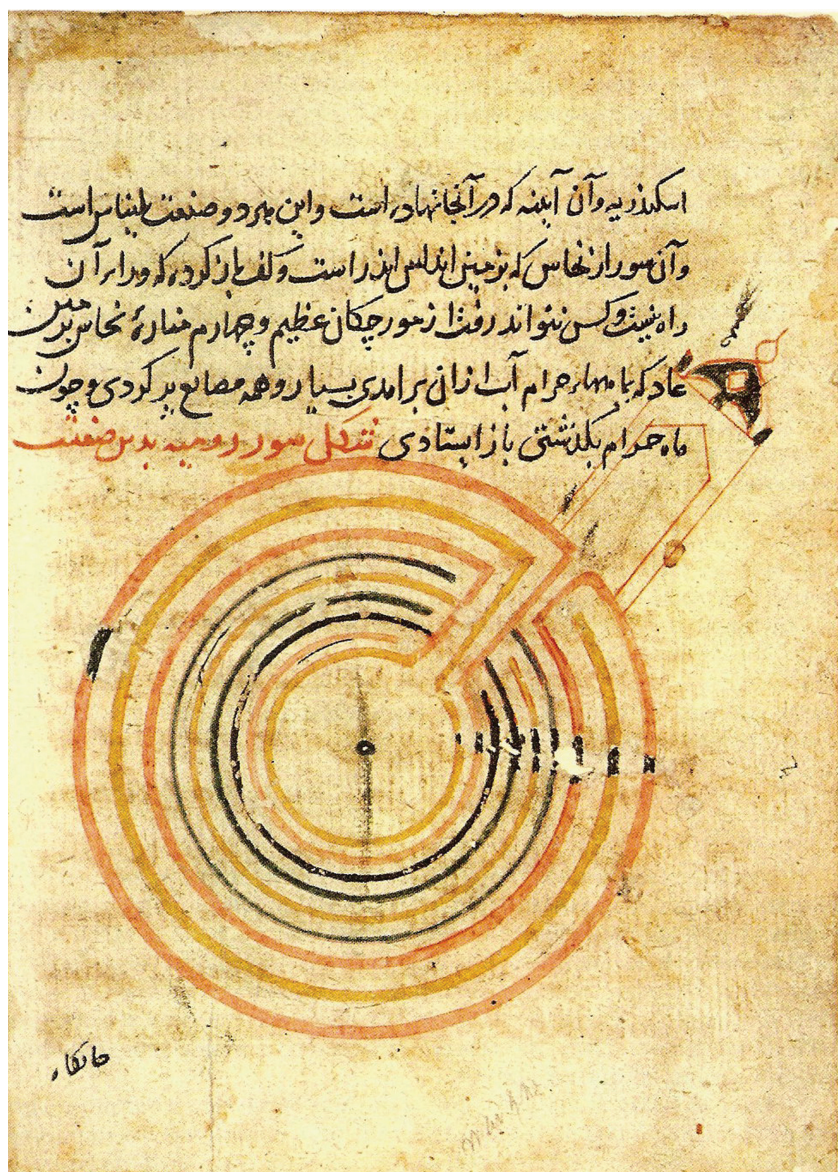 اسکندریه وآن آینه که در آنجا نهاده است واین هردو صنعت بلیناس است
وآن سور از نحاس که بزمین اندلس اندر است وکف باز کرده که وراء آن
راه نیست وکس نتواند رفت از مورچکان عظیم وچهارم منارهٔ نحاس بزمین
عاد که بماههاء حرام آب ازان برامدی بسیار وهمه مصانع پر کردی وچون
ماه حرام بگذشتی باز استادی شکل سور رومیه بدین صفتست